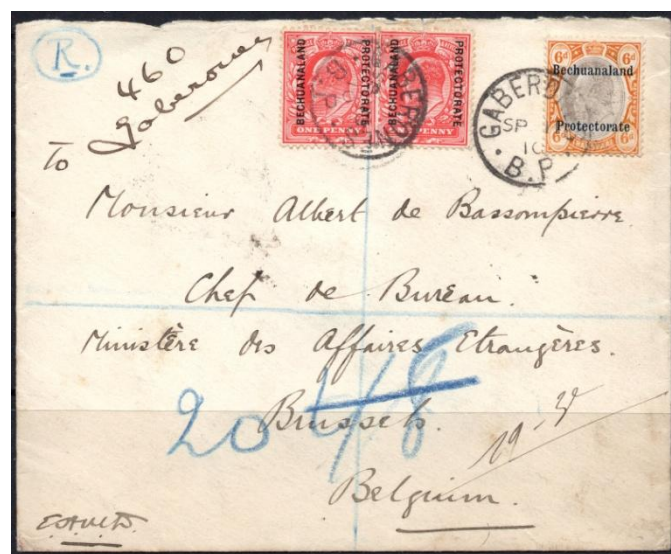 R.
460
Gaberones
BECHUANALAND PROTECTORATE
ONE PENNY
BECHUANALAND PROTECTORATE
PENNY
6d 6d
Bechuanaland
Protectorate
GABERO
SP
10
B.P.
To
Monsieur Albert de Bassompierre.
Chef de Bureau.
Ministère des Affaires Etrangères.
20
Brussels.
Belgium.